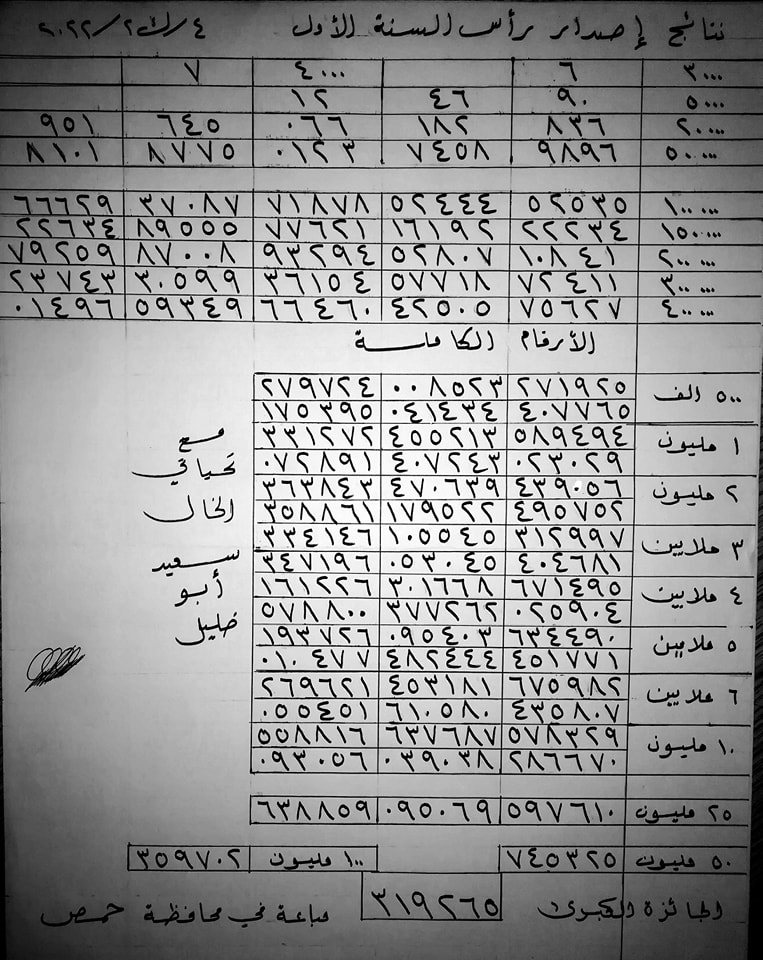 نتائج إصدار رأس السنة الأول ٤/ك٢/٢٠٢٢
٣٠٠٠ ٦ ٤٠٠٠ ٧
٥٠٠٠ ٩٠ ٤٦ ١٢
٢٠٠٠٠ ٨٣٦ ١٨٢ ٠٦٦ ٦٤٥ ٩٥١
٥٠٠٠٠ ٩٨٩٦ ٧٤٥٨ ٠١٢٣ ٨٧٧٥ ٨١٠١
١٠٠٠٠٠ ٥٢٥٣٥ ٥٢٤٤٤ ٧١٨٧٨ ٣٧٠٨٧ ٦٦٦٢٩
١٥٠٠٠٠ ٢٢٢٣٤ ١٦١٩٢ ٧٧٦٢١ ٨٩٥٥٥ ٢٢٦٣٤
٢٠٠٠٠٠ ١٠٨٤١ ٥٢٨٠٧ ٩٣٢٩٤ ٨٧٠٠٨ ٧٩٢٥٩
٣٠٠٠٠٠ ٧٢٤١١ ٥٧٧١٨ ٣٦١٥٤ ٣٠٥٩٩ ٢٣٧٤٣
٤٠٠٠٠٠ ٧٥٦٢٧ ٤٢٥٠٥ ٦٦٤٦٠ ٥٩٣٤٩ ٠١٤٩٦
الأرقام الكاملة
٥٠٠ الف ٢٧١٩٢٥ ٠٠٨٥٢٣ ٢٧٩٧٢٤
٤٠٧٧٦٥ ٠٤١٤٣٤ ١٧٥٣٩٥
١ مليون ٥٨٩٤٩٤ ٤٥٥٢١٣ ٣٣١٢٧٢
٠٢٣٠٢٩ ٤٠٧٢٤٣ ٠٧٢٨٩١
٢ مليون ٤٣٩٠٥٦ ٤٧٠٦٣٩ ٣٦٣٨٤٣
٤٩٥٧٥٢ ١٧٩٥٢٢ ٣٥٨٨٦١
٣ ملايين ٣١٢٩٩٧ ١٠٥٥٤٥ ٣٣٤١٤٦
٤٠٤٦٨١ ٠٥٣٠٤٥ ٣٤٧١٩٦
٤ ملايين ٦٧١٤٩٥ ٣٠١٦٦٨ ١٦١٢٢٦
٠٢٥٩٠٤ ٣٧٧٢٦٢ ٥٧٨٨٠٠
٥ ملايين ٦٣٤٤٩٠ ٠٩٥٤٠٣ ١٩٣٧٢٦
٤٥١٧٧١ ٤٨٢٤٤٤ ٠١٠٤٧٧
٦ ملايين ٦٧٥٩٨٢ ٤٥٣١٨١ ٢٦٩٦٢١
٤٣٥٨٠٧ ٦١٠٥٨٠ ٠٥٥٤٥١
١٠ مليون ٥٧٨٣٢٩ ٦٣٧٦٨٧ ٥٥٨٨١٦
٢٨٦٦٧٠ ٠٣٩٠٣٨ ٠٩٣٠٥٦
مع
تحياتي
الخال
سعيد
أبو
خليل
٢٥ مليون ٥٩٧٦١٠ ٠٩٥٠٦٩ ٦٣٨٨٥٩
٥٠ مليون ٧٤٥٣٢٥ ١٠٠ مليون ٣٥٩٧٠٢
الجائزة الكبرى ٣١٩٢٦٥ مباعة في محافظة حمص